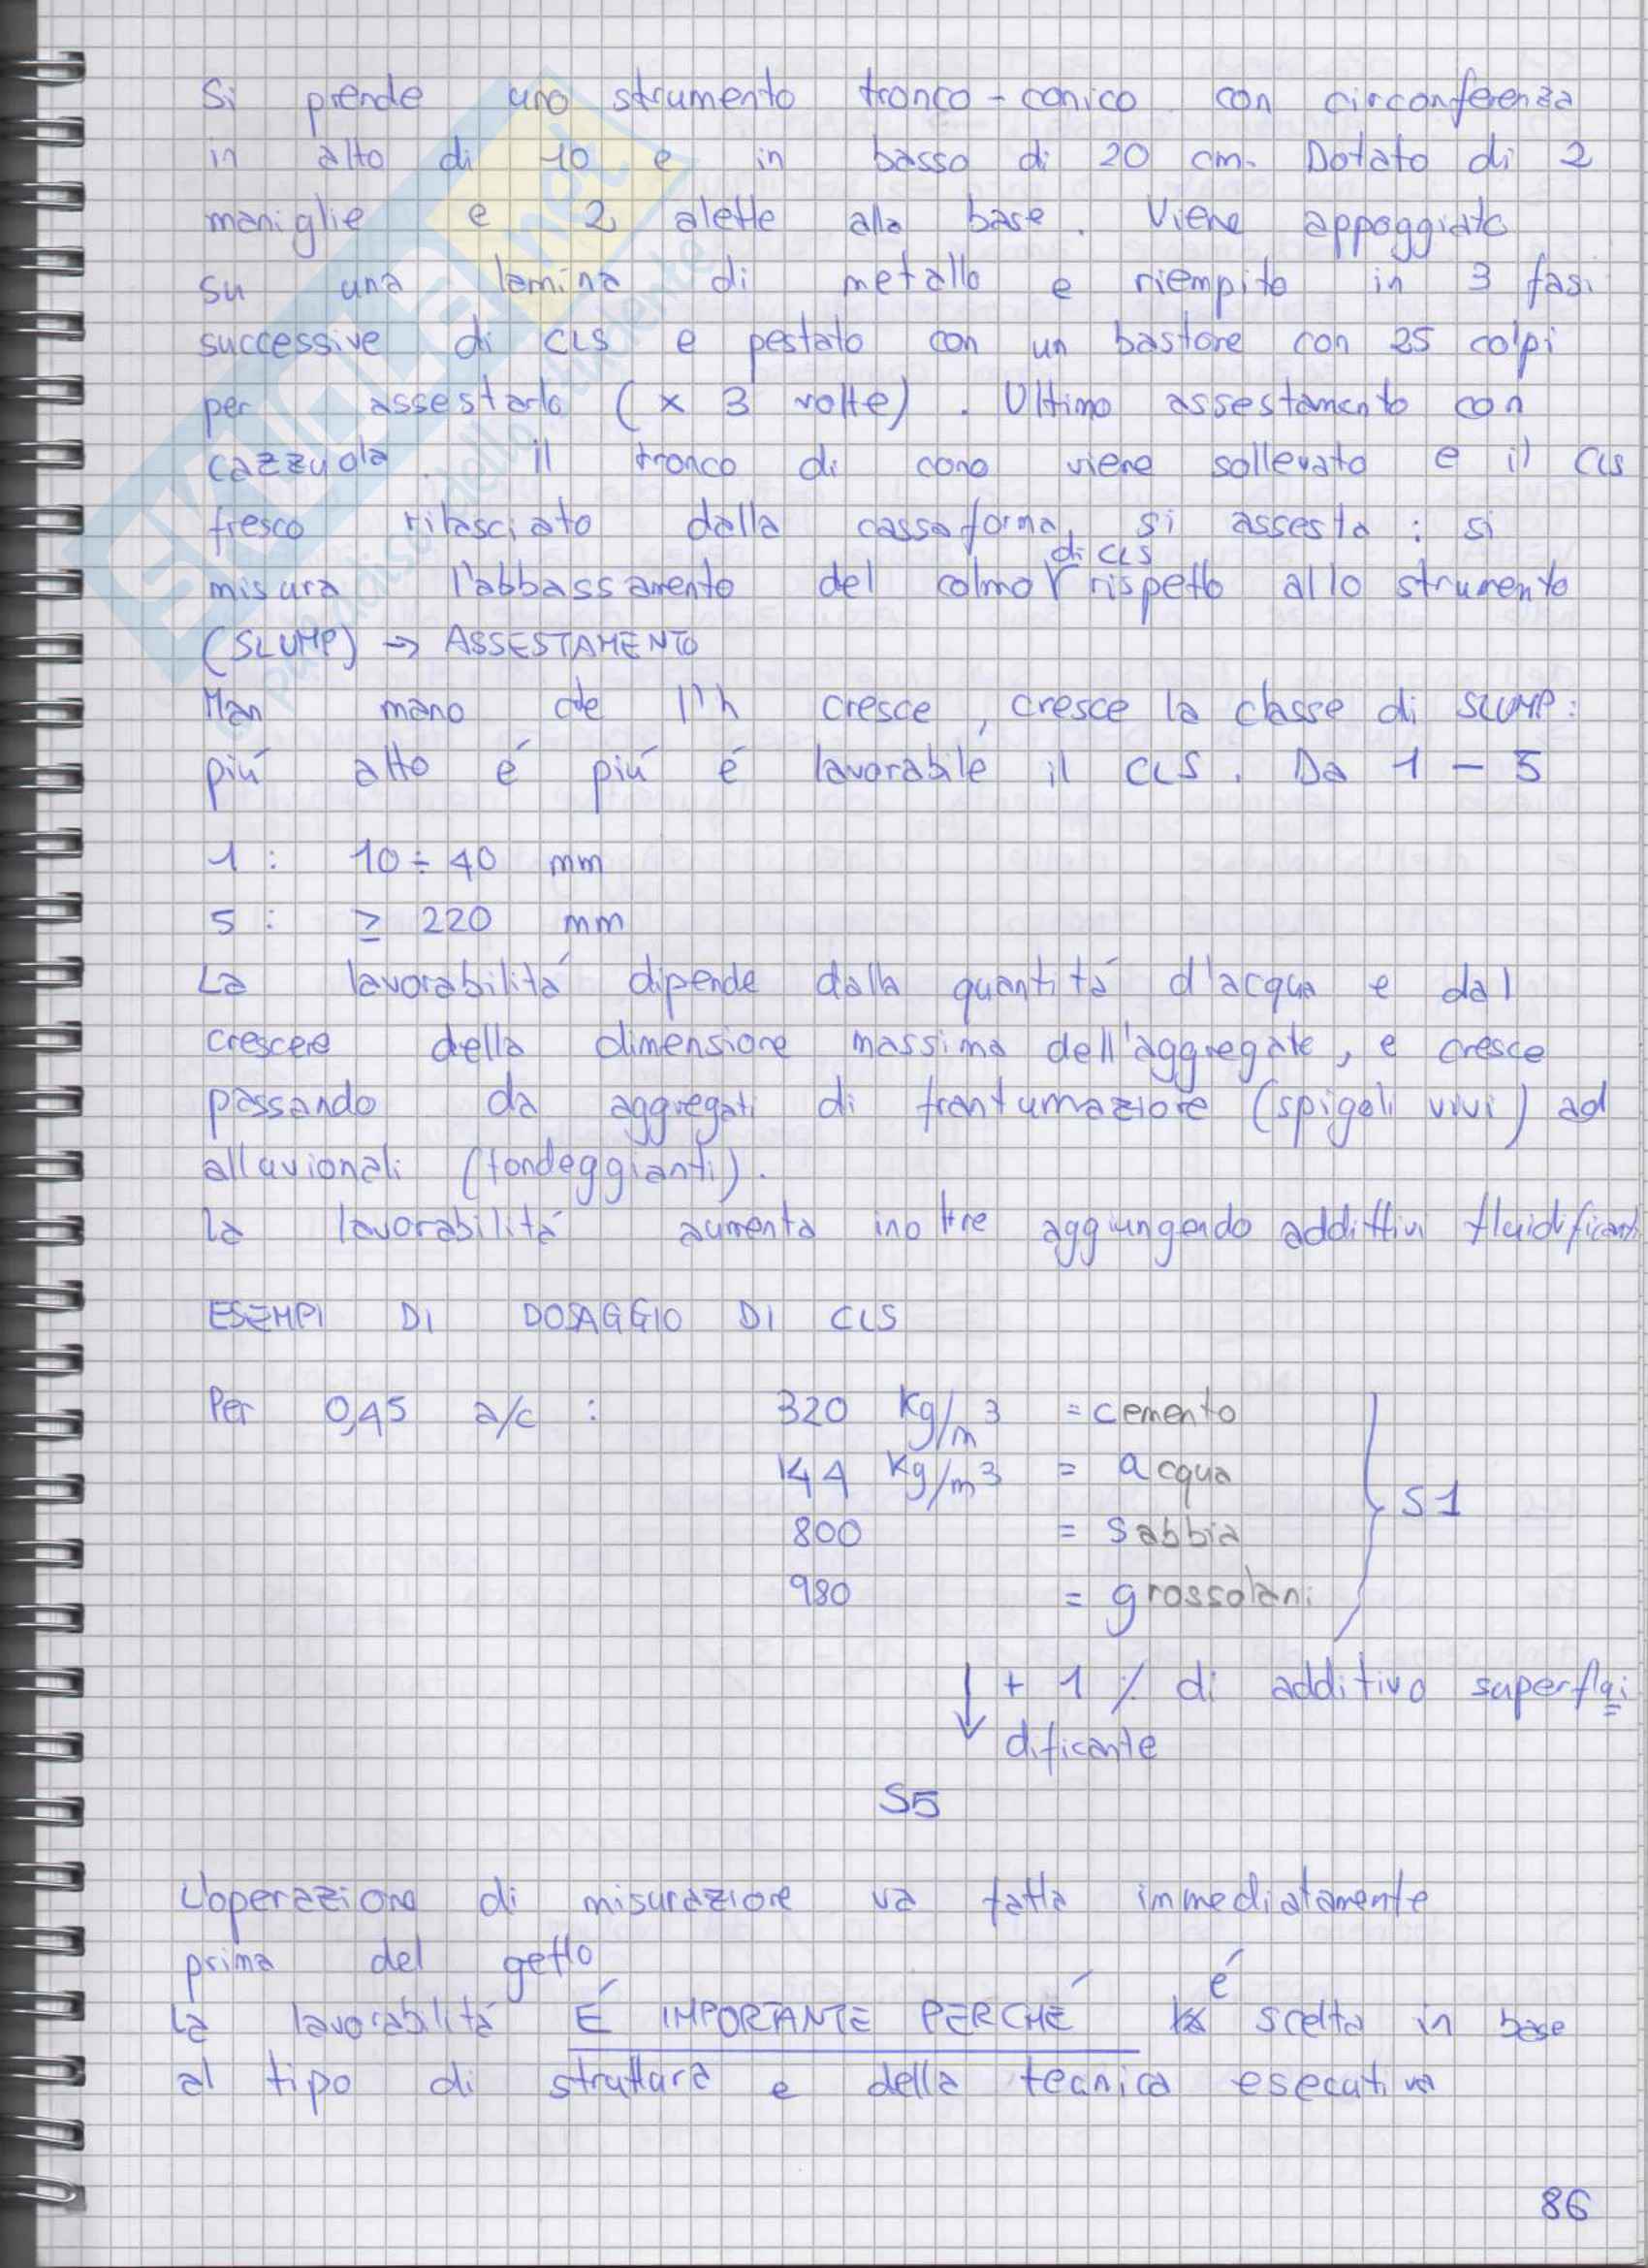 Si prende uno strumento tronco-conico con circonferenza
in alto di 10 e in basso di 20 cm. Dotato di 2
maniglie e 2 alette alla base. Viene appoggiato
su una lamina di metallo e riempito in 3 fasi
successive di CLS e pestato con un bastone con 25 colpi
per assestarlo (x 3 volte). Ultimo assestamento con
cazzuola. il tronco di cono viene sollevato e il CLS
fresco rilasciato dalla cassaforma, si assesta: si
misura l'abbassamento del colmo di CLS rispetto allo strumento
(SLUMP) → ASSESTAMENTO
Man mano che l'h cresce, cresce la classe di SLUMP:
piú alto é piú é lavorabile il CLS. Da 1 - 5
1: 10 ÷ 40 mm
5: ≥ 220 mm
La lavorabilitá dipende dalla quantitá d'acqua e dal
crescere della dimensione massima dell'aggregate, e cresce
passando da aggregati di frantumazione (spigoli vivi) ad
alluvionali (tondeggianti).
la lavorabilitá aumenta inoltre aggiungendo addittivi fluidificanti
ESEMPI DI DOSAGGIO DI CLS
Per 0,45 a/c : 320 Kg/m3 = cemento
144 Kg/m3 = acqua
800 = sabbia
980 = grossolani
S1
↓ + 1 % di additivo superflui
dificante
S5
L'operazione di misurazione va fatta immediatamente
prima del getto
La lavorabilitá É IMPORTANTE PERCHÉ é scelta in base
al tipo di struttura e della tecnica esecutiva
86
SKUOLA.net
il paradiso dello studente